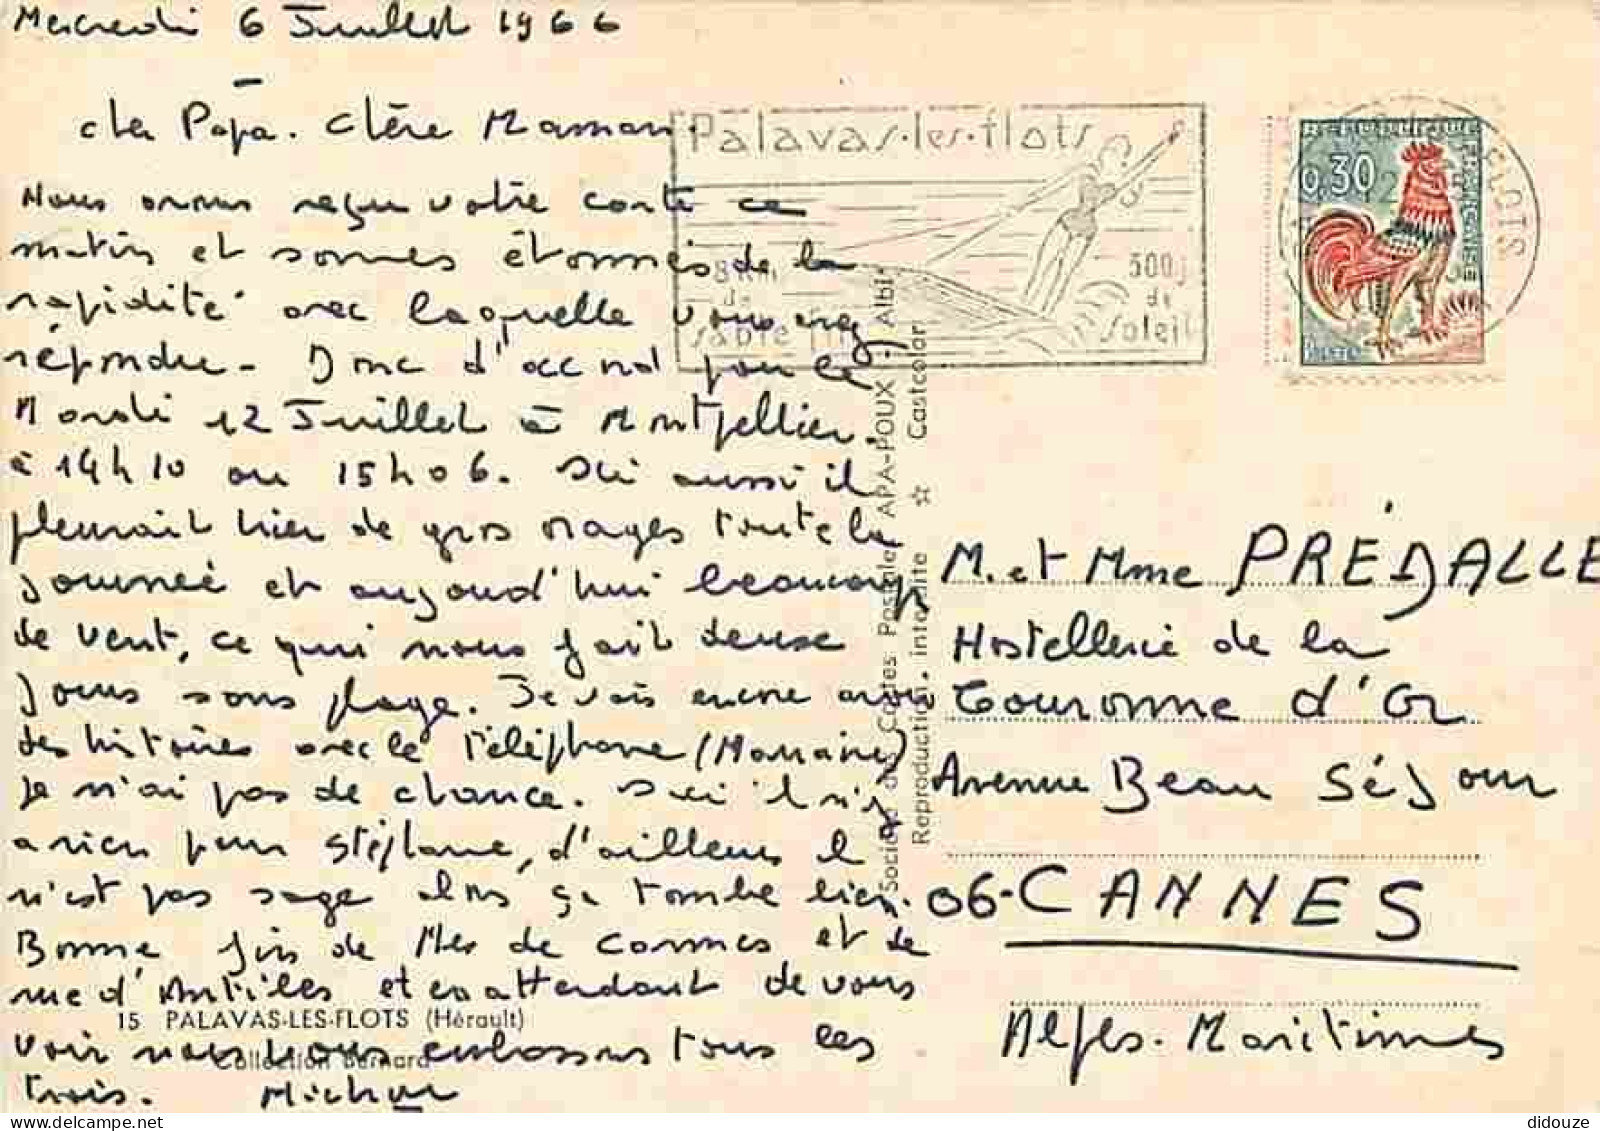 Mercredi 6 Juillet 1966
cher Papa. Chère Maman.
Nous avons reçu votre carte ce
matin et sommes étonnés de la
rapidité avec laquelle vous avez
répondu - Donc d'accord pour le
Mardi 12 Juillet à Montpellier.
à 14h10 ou 15h06. Ici aussi il
pleuvait hier de gros orages toute la
journée et aujourd'hui beaucoup
de vent, ce qui nous fait deux
jours sans plage. Je vais encore avoir
des histoires avec le téléphone (Marraine)
je n'ai pas de chance. Ici il n'y
a rien pour Stéphane, d'ailleurs il
n'est pas sage alors ça tombe bien.
Bonne fin de de Cannes et de
rue d'Antibes et en attendant de vous
voir nous vous embrassons tous les
trois.
15 PALAVAS-LES-FLOTS (Hérault)
Collection Bernard
Société des Cartes Postales APA-POUX - Albi
Reproduction interdite ☆ Castcolor
Palavas-les-flots
8 Km
de
Sable fin
300 j
de
Soleil
REPUBLIQUE FRANÇAISE
0,30
POSTES
FLOTS
M. et Mme PRÉDALLE
Hostellerie de la
Couronne d'Or
Avenue Beau Séjour
06-CANNES
Alpes-Maritimes
didouze